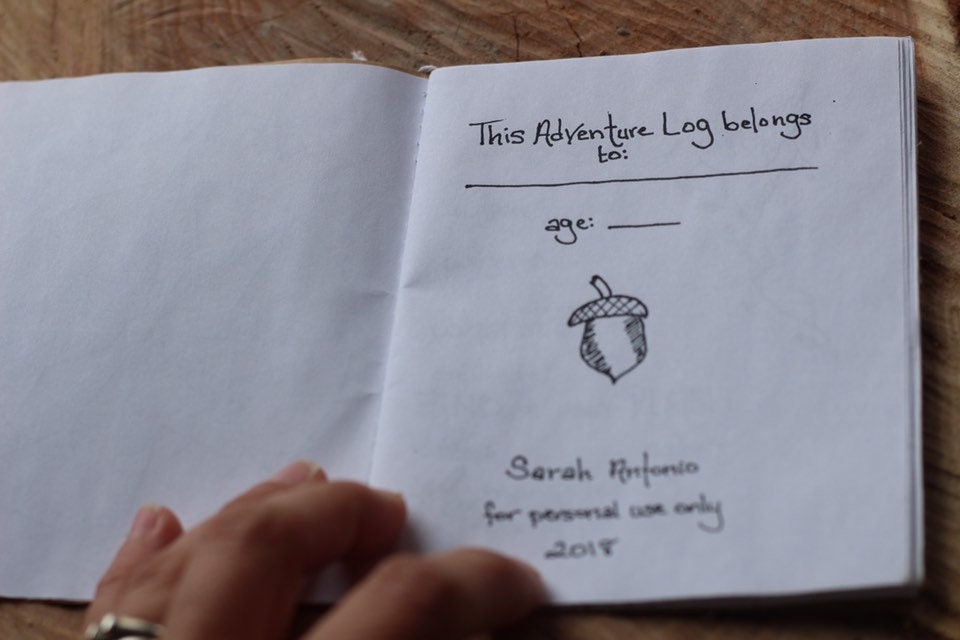 This Adventure Log belongs
to:
age:
Sarah Antonio
for personal use only
2018